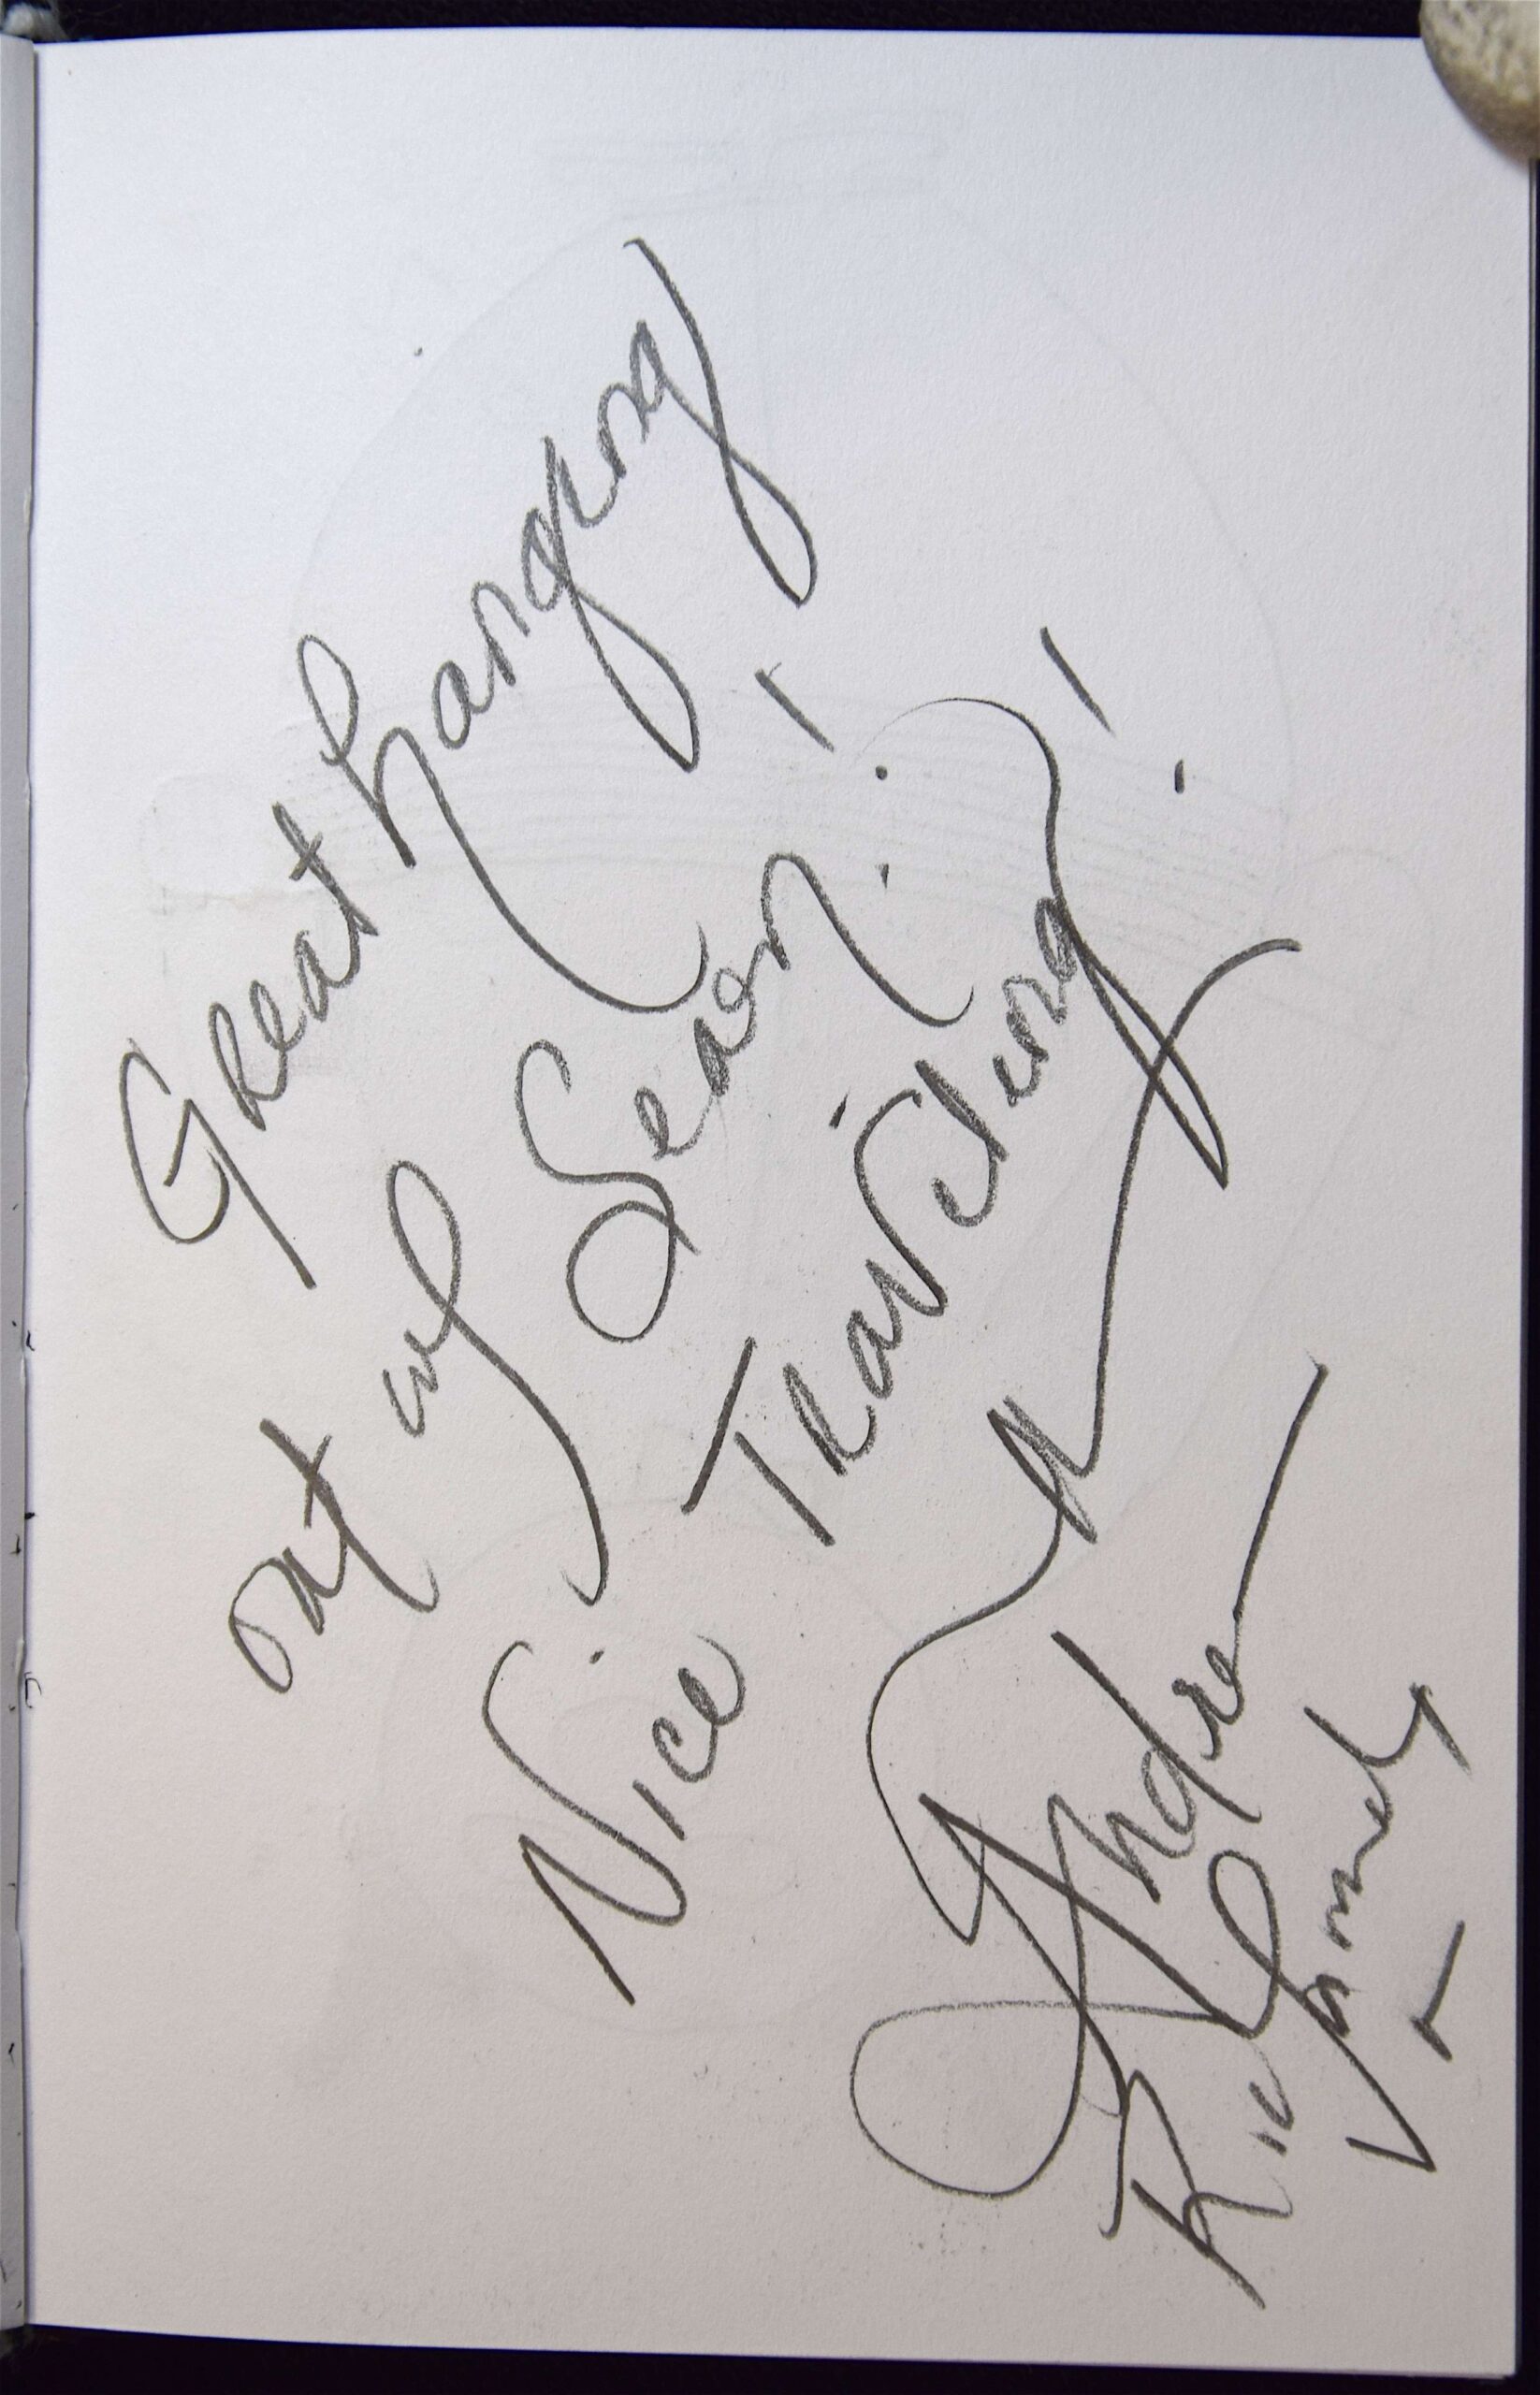 Great hanging
out w/ Sean!
Nice Traveling!
Andre
Rich